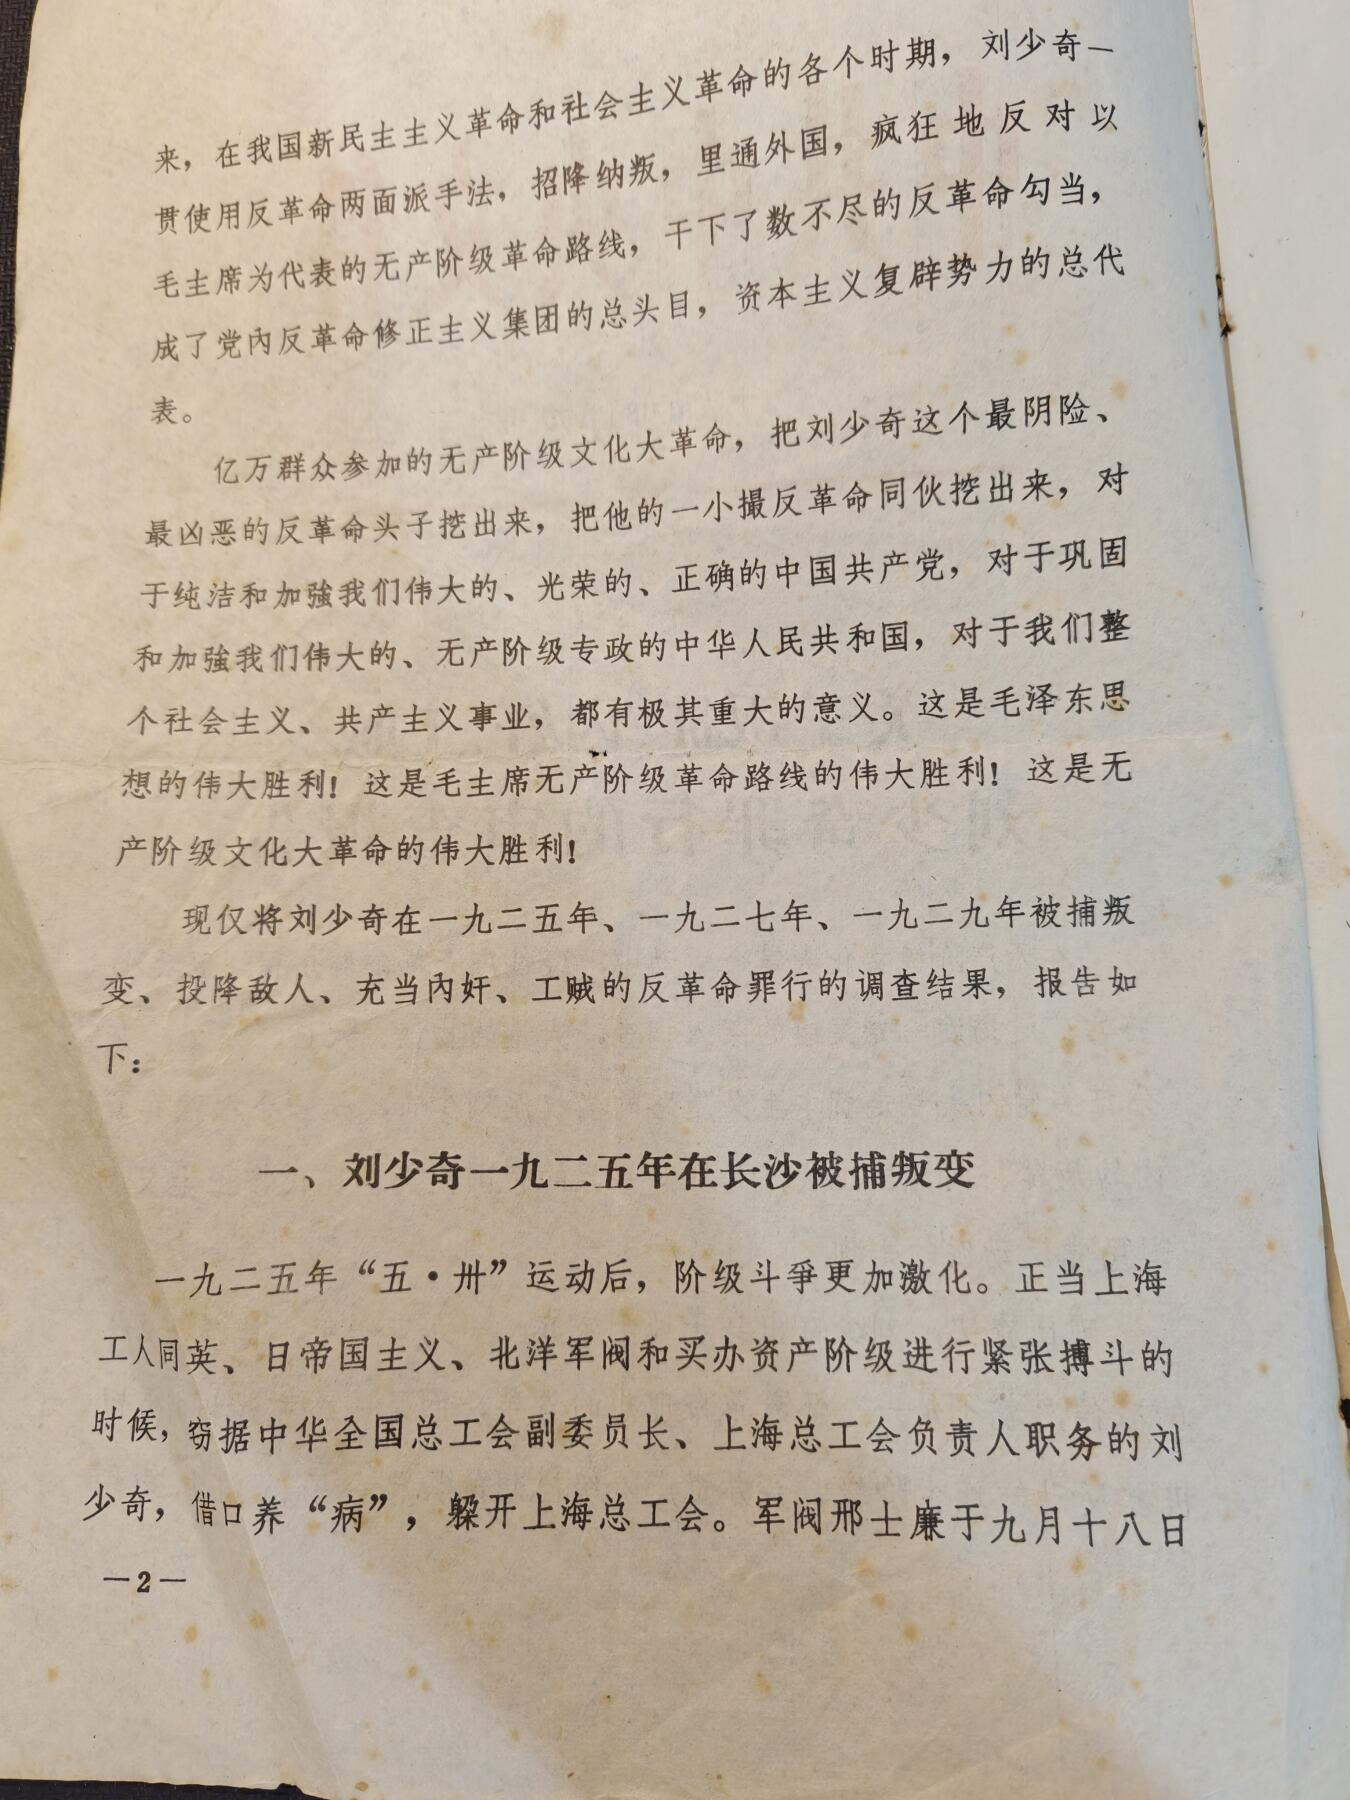 来，在我国新民主主义革命和社会主义革命的各个时期，刘少奇一
贯使用反革命两面派手法，招降纳叛，里通外国，疯狂地反对以
毛主席为代表的无产阶级革命路线，干下了数不尽的反革命勾当，
成了党內反革命修正主义集团的总头目，资本主义复辟势力的总代
表。
亿万群众参加的无产阶级文化大革命，把刘少奇这个最阴险、
最凶恶的反革命头子挖出来，把他的一小撮反革命同伙挖出来，对
于纯洁和加強我们伟大的、光荣的、正确的中国共产党，对于巩固
和加強我们伟大的、无产阶级专政的中华人民共和国，对于我们整
个社会主义、共产主义事业，都有极其重大的意义。这是毛泽东思
想的伟大胜利！这是毛主席无产阶级革命路线的伟大胜利！这是无
产阶级文化大革命的伟大胜利！
现仅将刘少奇在一九二五年、一九二七年、一九二九年被捕叛
变、投降敌人、充当內奸、工贼的反革命罪行的调查结果，报告如
下：
一、刘少奇一九二五年在长沙被捕叛变
一九二五年“五·卅”运动后，阶级斗爭更加激化。正当上海
工人同英、日帝国主义、北洋军阀和买办资产阶级进行紧张搏斗的
时候，窃据中华全国总工会副委员长、上海总工会负责人职务的刘
少奇，借口养“病”，躱开上海总工会。军阀邢士廉于九月十八日
—2—